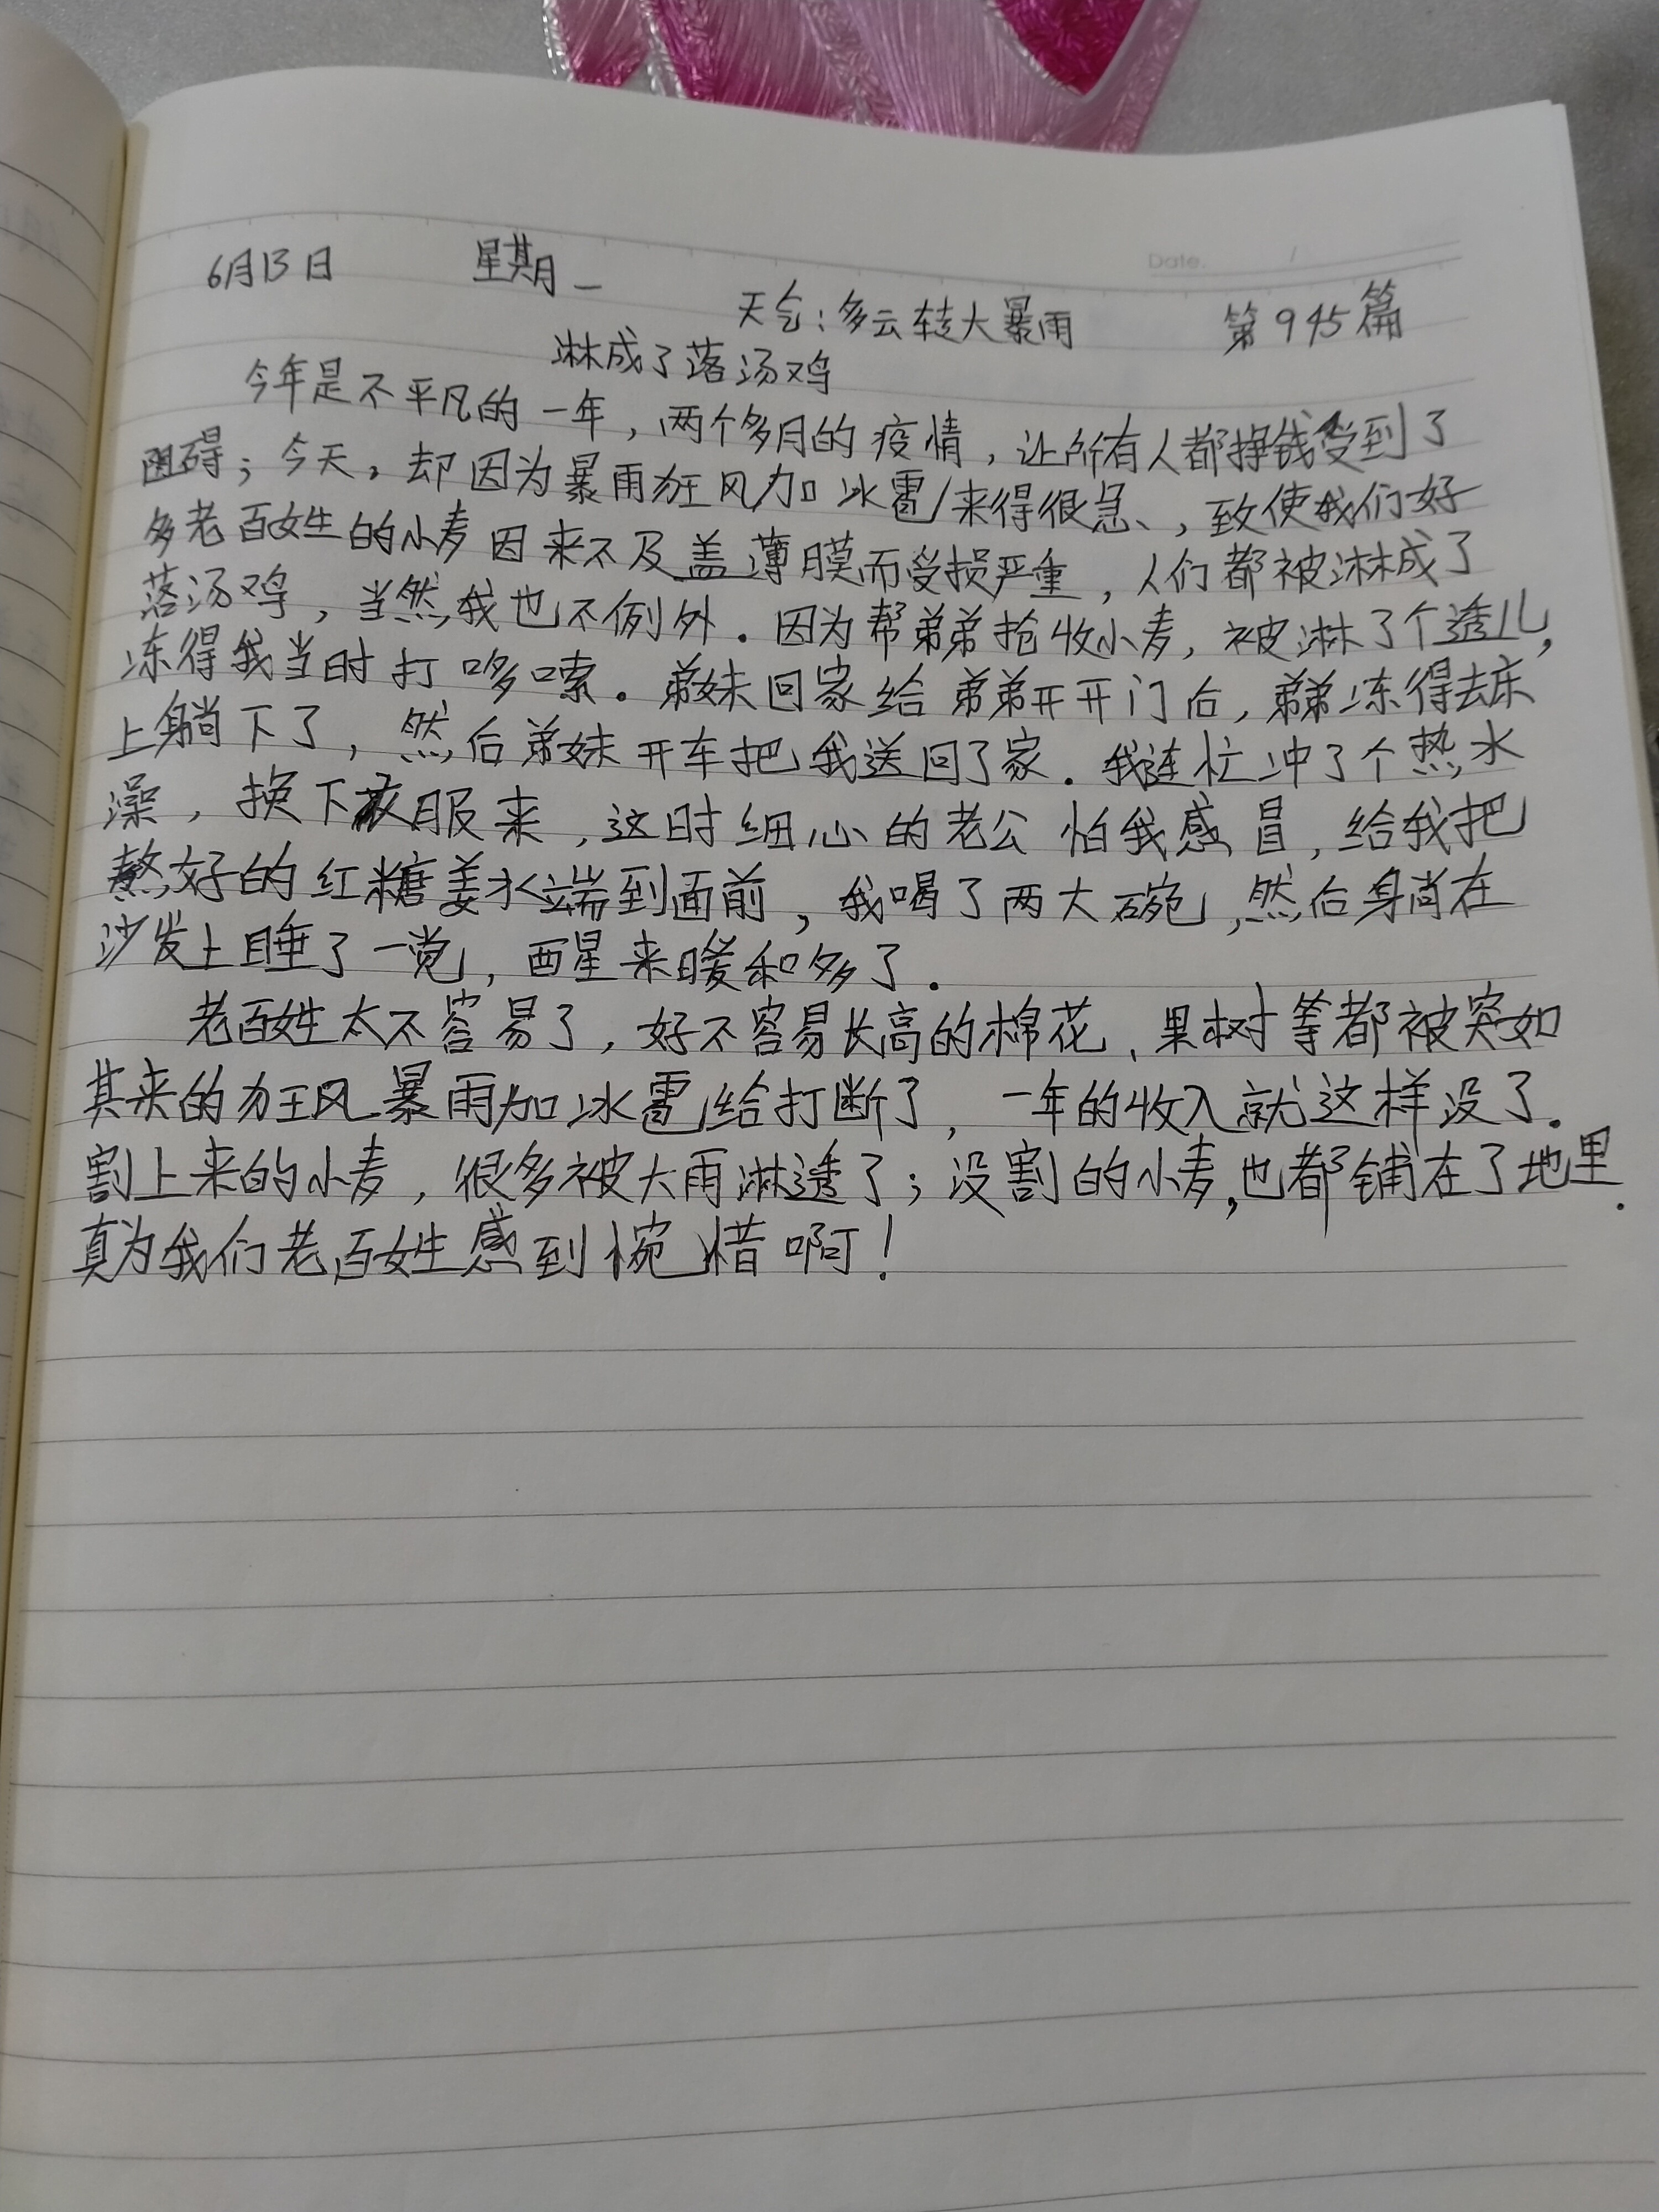 Date.
6月13日 星期一 天气:多云转大暴雨 第945篇
淋成了落汤鸡
今年是不平凡的一年,两个多月的疫情,让所有人都挣钱受到了
阻碍;今天,却因为暴雨狂风加冰雹来得很急、,致使我们好
多老百姓的小麦因来不及盖薄膜而受损严重,人们都被淋成了
落汤鸡,当然我也不例外.因为帮弟弟抢收小麦,被淋了个透儿,
冻得我当时打哆嗦.弟妹回家给弟弟开开门后,弟弟冻得去床
上躺下了,然后弟妹开车把我送回了家.我连忙冲了个热水
澡,换下衣服来,这时细心的老公怕我感冒,给我把
熬好的红糖姜水端到面前,我喝了两大碗,然后躺在
沙发上睡了一觉,醒来暖和多了.
老百姓太不容易了,好不容易长高的棉花、果树等都被突如
其来的狂风暴雨加冰雹给打断了,一年的收入就这样没了.
割上来的小麦,很多被大雨淋透了;没割的小麦,也都铺在了地里.
真为我们老百姓感到惋惜啊!